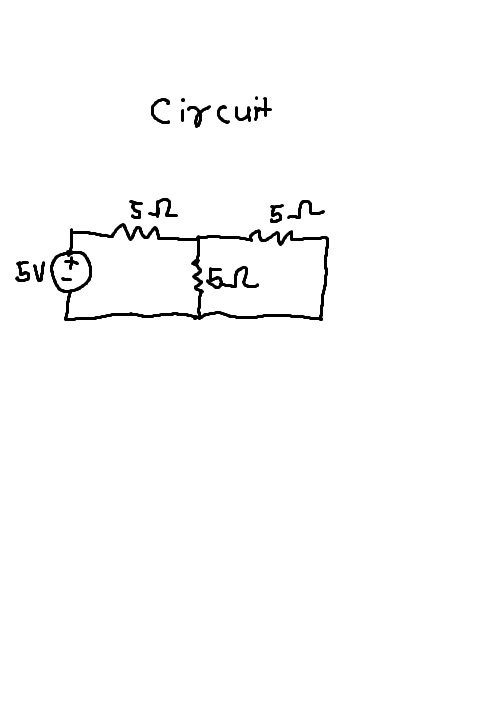 Circuit
5Ω 5Ω
5V + - 5Ω